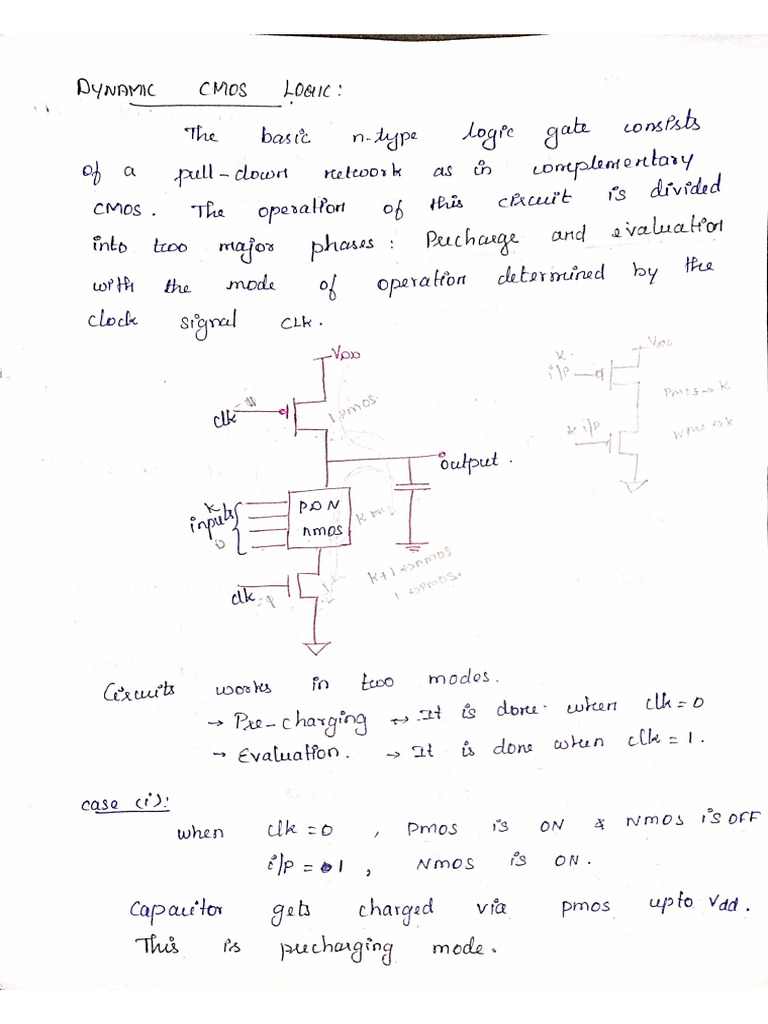 DYNAMIC CMOS LOGIC:
The basic n-type logic gate consists
of a pull-down network as in complementary
CMOS. The operation of this circuit is divided
into two major phases: Precharge and evaluation
with the mode of operation determined by the
clock signal CLK.
VDD
clk
1 PMOS
output.
K
inputs
PDN
nmos
clk
K+1 ↔ nmos
1 ↔ pmos.
VDD
K
i/p
K i/p
Pmos → K
Nmos → K
Circuits works in two modes.
→ Pre-charging ↔ It is done when clk=0
→ Evaluation. → It is done when clk=1.
case (i):
when clk=0, PMOS is ON & NMOS is OFF
i/p = 1, NMOS is ON.
Capacitor gets charged via pmos upto Vdd.
This is precharging mode.